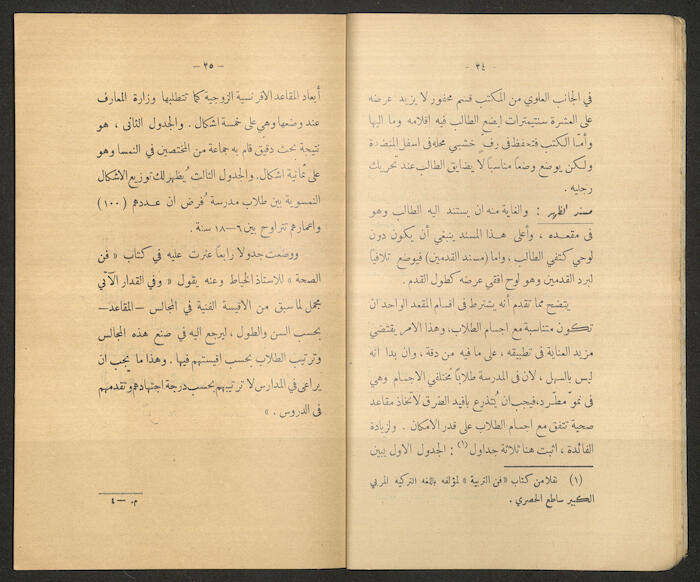 - ٣٤ -
في الجانب العلوي من المكتب قسم محفور لا يزيد عرضه
على العشرة سنتيمترات ليضع الطالب فيه اقلامه وما اليها
وأما الكتب فتحفظ في رف خشبي محله في اسفل المنضدة
ولكن يوضع وضعاً مناسباً لا يضايق الطالب عند تحريك
رجليه .
مسند الظهر : والغاية منه ان يستند اليه الطالب وهو
في مقعده ، وأعلى هذا المسند ينبغي أن يكون دون
لوحي كتفي الطالب ، واما (مسند القدمين) فيوضع تلافياً
لبرد القدمين وهو لوح افقي عرضه كطول القدم .
يتضح مما تقدم أنه يشترط في اقسام المقعد الواحد ان
تكون متناسبة مع اجسام الطلاب، وهذا الامر يقتضي
مزيد العناية في تطبيقه ، على ما فيه من دقة ، وان بدا انه
ليس بالسهل ، لان في المدرسة طلاباً مختلفي الاجسام وهي
في نموّ مطّرد، فيجب ان يُتذرع بافيد الطرق لاتخاذ مقاعد
صحية تتفق مع اجسام الطلاب على قدر الامكان . ولزيادة
الفائدة ، اثبت هنا ثلاثة جداول (١) : الجدول الاول يبين
(١) نقلا من كتاب « فن التربية » لمؤلفه باللغه التركيه المربي
الكبير ساطع الحصري .
- ٣٥ -
أبعاد المقاعد الافرنسية الزوجية كما تتطلبها وزارة المعارف
عند وضعها وهي على خمسة اشكال . والجدول الثاني ، هو
نتيجة بحث دقيق قام به جماعة من المختصين في النمسا وهو
على ثمانية اشكال. والجدول الثالث يُظهر لك توزيع الاشكال
النمسوية بين طلاب مدرسة فُرض ان عددهم (١٠٠)
واعمارهم تتراوح بين ٦-١٨ سنة .
ووضعت جدولا رابعاً عثرت عليه في كتاب « فن
الصحة » للاستاذ الخياط وعنه يقول « وفي القدار الآتي
مجمل لما سبق من الاقيسة الفنية في المجالس - المقاعد -
بحسب السن والطول ، ليرجع اليه في صنع هذه المجالس
وترتيب الطلاب بحسب اقيستهم فيها . وهذا ما يجب ان
يراعى في المدارس لا ترتيبهم بحسب درجة اجتهادهم وتقدمهم
في الدروس . »
م. -٤